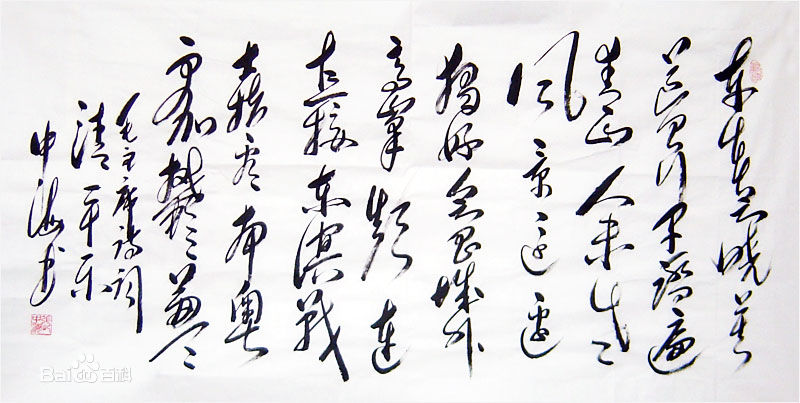 东方欲晓莫
道君行早踏遍
青山人未老
风景这边
独好会昌城外
高峰颠连
直接东溟战
士指看南粤
更加鬱々葱々
毛主席诗词
清平乐
海书
Bai百科